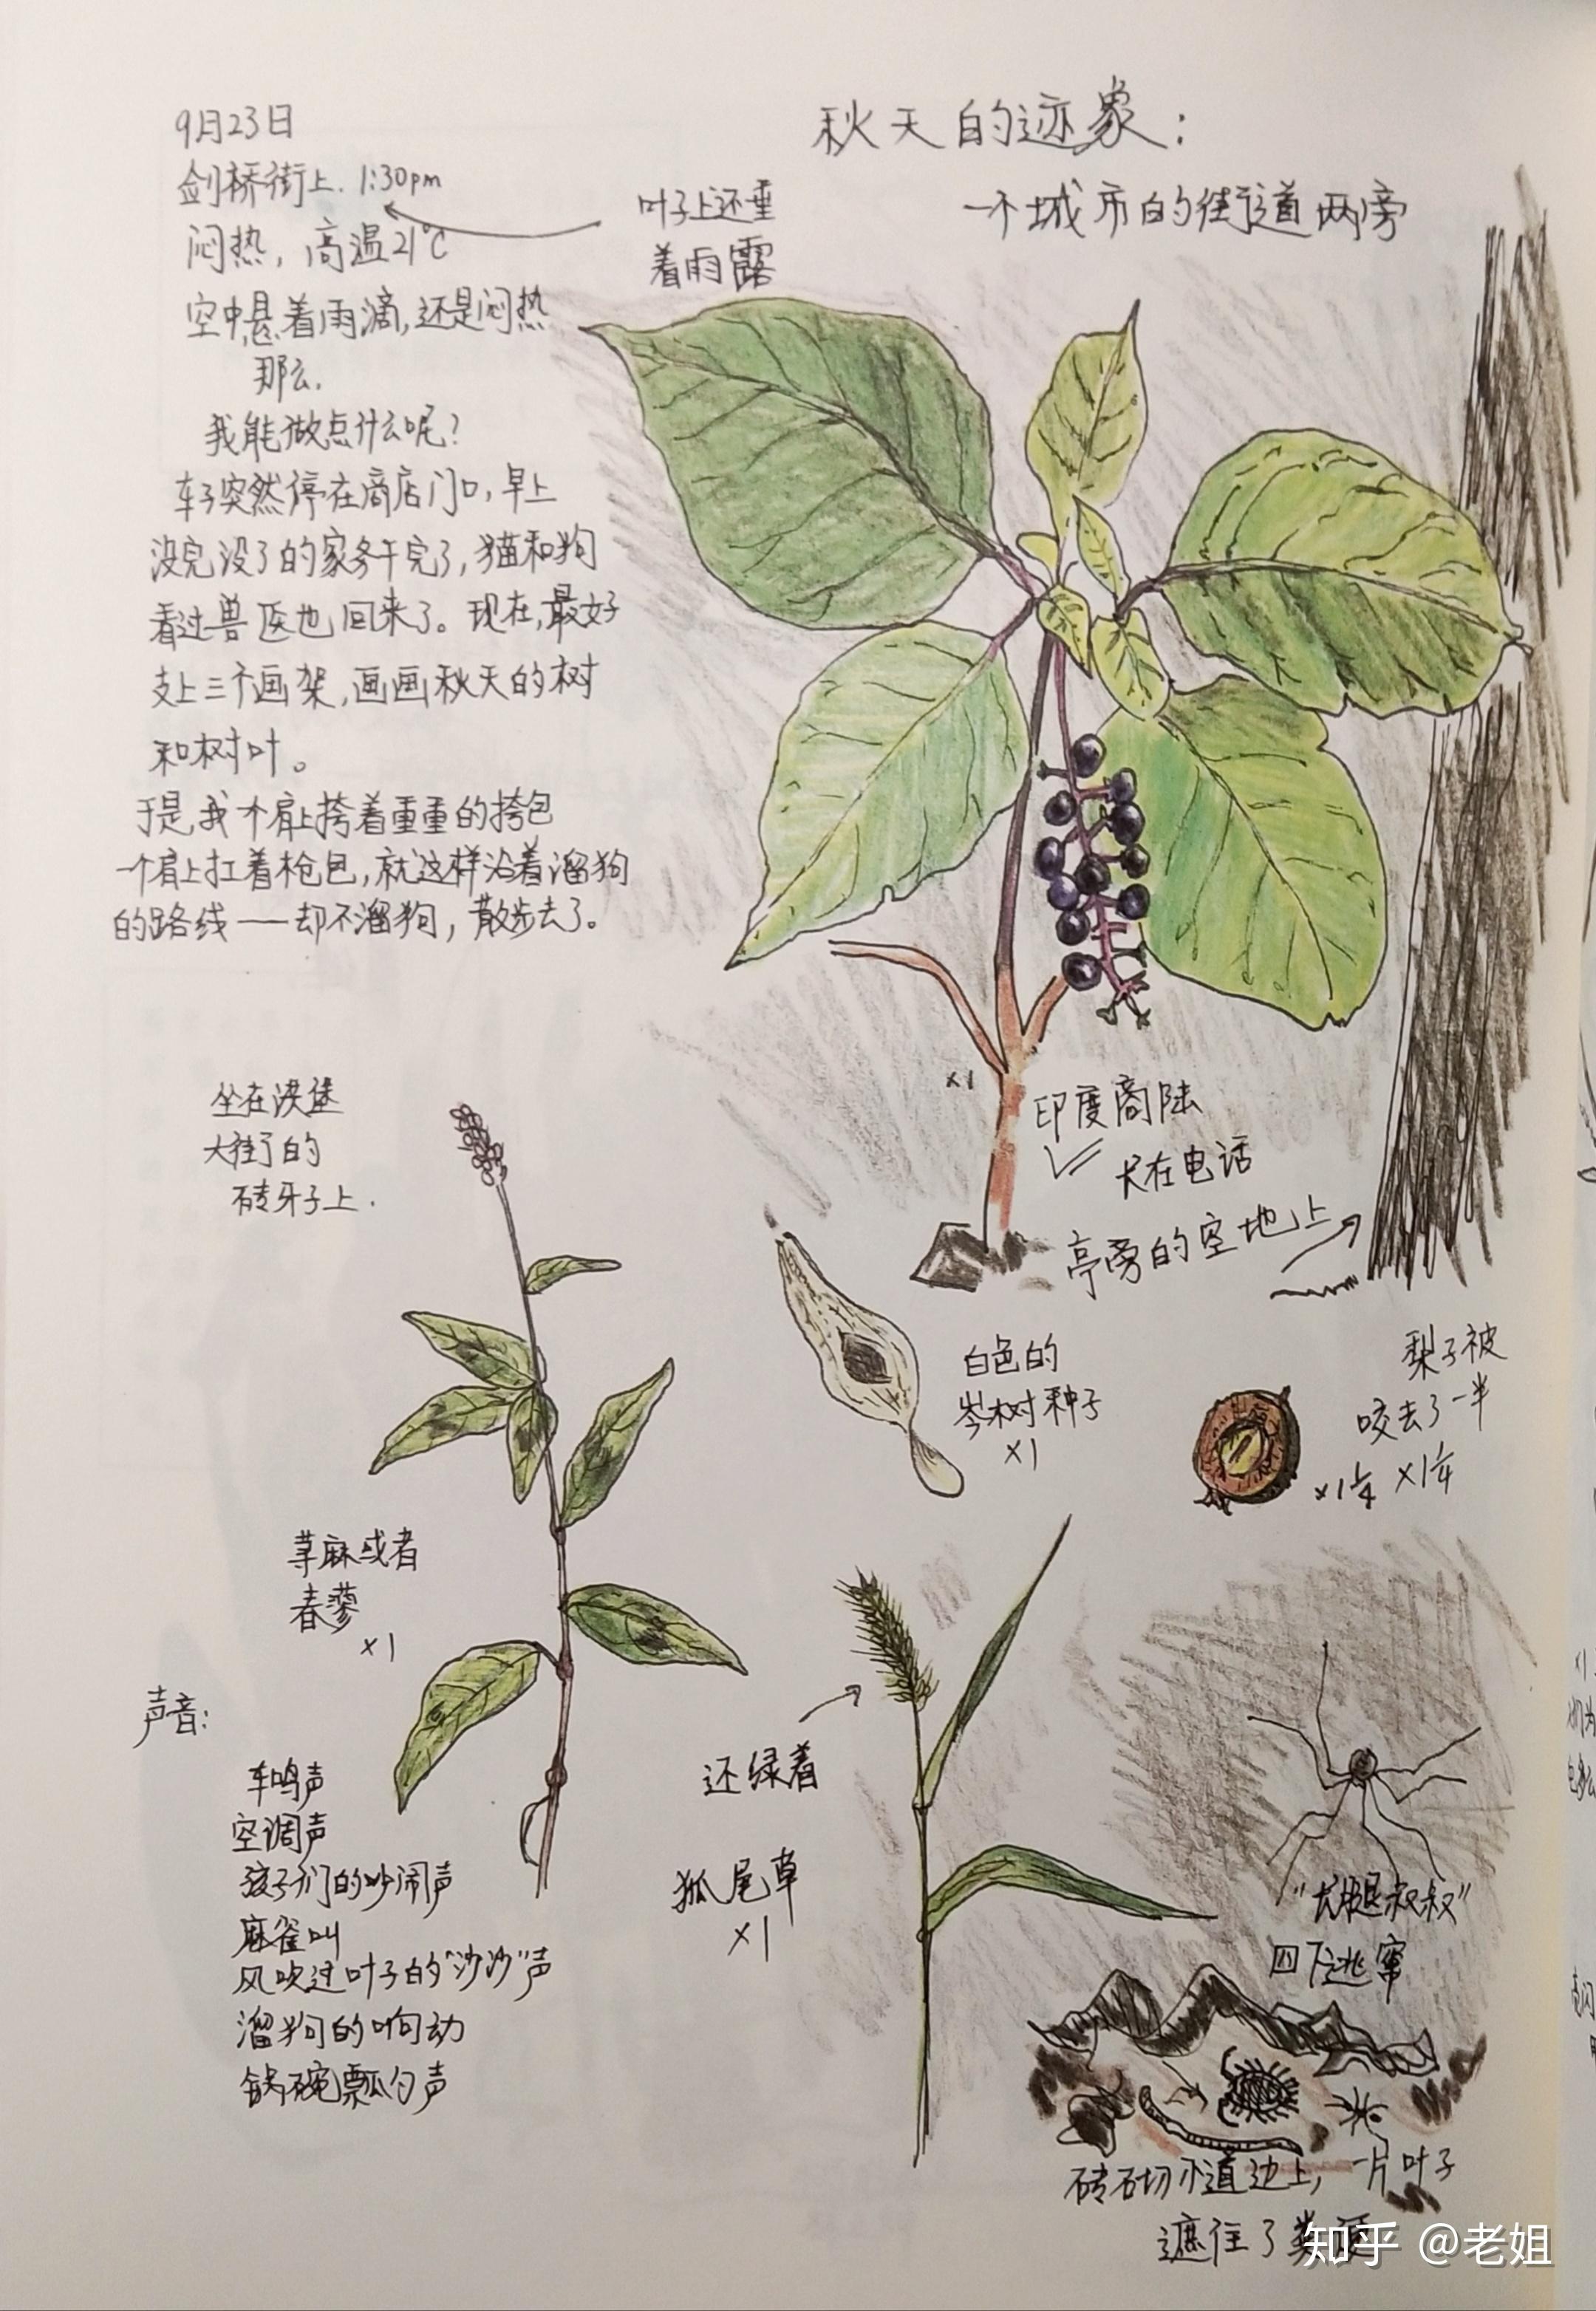 9月23日
剑桥街上. 1:30pm
闷热，高温21℃
空中悬着雨滴,还是闷热
那么.
我能做点什么呢?
车子突然停在商店门口,早上
没完没了的家务干完了,猫和狗
看过兽医也回来了。现在,最好
支上三个画架,画画秋天的树
和树叶。
于是,我一个肩上挎着重重的挎包
一个肩上扛着枪包,就这样沿着溜狗
的路线——却不溜狗，散步去了。
叶子上还垂
着雨露
秋天的迹象:
一个城市的街道两旁
×1
印度商陆
长在电话
亭旁的空地上
坐在洪堡
大街的
砖牙子上.
白色的
岑树种子
×1
梨子被
咬去了一半
×1¼ ×1¼
荨麻或者
春蓼
×1
声音:
车鸣声
空调声
孩子们的吵闹声
麻雀叫
风吹过叶子的"沙沙"声
溜狗的响动
锅碗瓢勺声
还绿着
狐尾草
×1
"长腿叔叔"
四下逃窜
砖砌小道边上,一片叶子
遮住了
知乎 @老姐